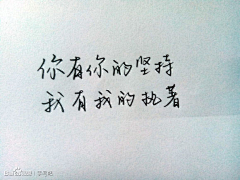 你有你的坚持
我有我的执著